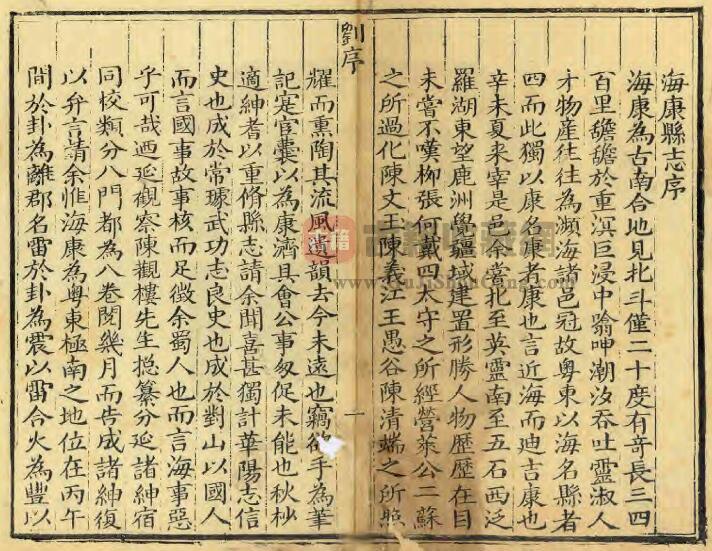 海康縣志序
海康為古南合地見北斗僅二十度有奇長三四
百里礚礚於重溟巨浸中翕呷潮汐吞吐靈淑人
才物產往往為瀕海諸邑冠故粵東以海名縣者
四而此獨以康名康者康也言近海而迪吉康也
辛未夏来宰是邑余嘗北至英靈南至五石西泛
羅湖東望鹿洲覺疆域建置形勝人物歴歴在目
未嘗不嘆柳張何戴四太守之所經營萊公二蘇
之所過化陳文王陳義江王愚谷陳清端之所照
劉序
一
耀而熏陶其流風遺韻去今未遠也竊欲手為筆
記寔官橐以為康濟具會公事匆促未能也秋杪
適紳耆以重脩縣志請余聞喜甚獨計華陽志信
史也成於常璩武功志良史也成於對山以國人
而言國事故事核而足徵余蜀人也而言海事惡
乎可哉廼延觀察陳觀樓先生揔纂分延諸紳宿
同校類分八門都為八卷閱幾月而告成諸紳復
以弁言請余惟海康為粵東極南之地位在丙午
間於卦為離郡名雷於卦為震以雷合火為豐以